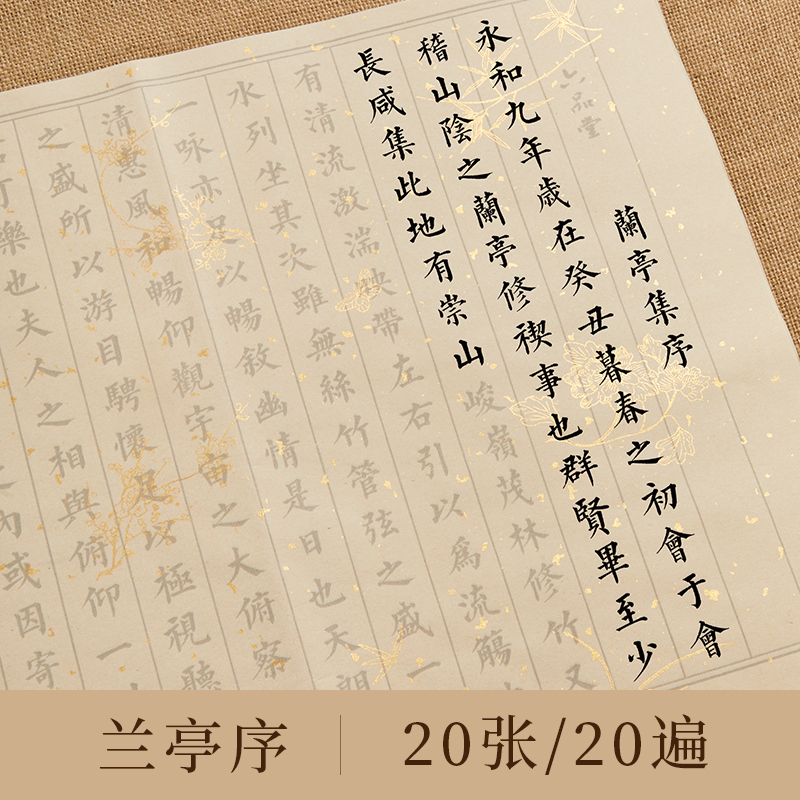 六品堂
蘭亭集序
永和九年歲在癸丑暮春之初會于會
稽山陰之蘭亭修禊事也群賢畢至少
長咸集此地有崇山峻嶺茂林修竹又
有清流激湍映帶左右引以爲流觴
水列坐其次雖無絲竹管弦之盛一
一咏亦足以暢敘幽情是日也天朗
清惠風和暢仰觀宇宙之大俯察
之盛所以游目騁懷足以極視聽
可樂也夫人之相與俯仰一
內或因寄
兰亭序
20张/20遍